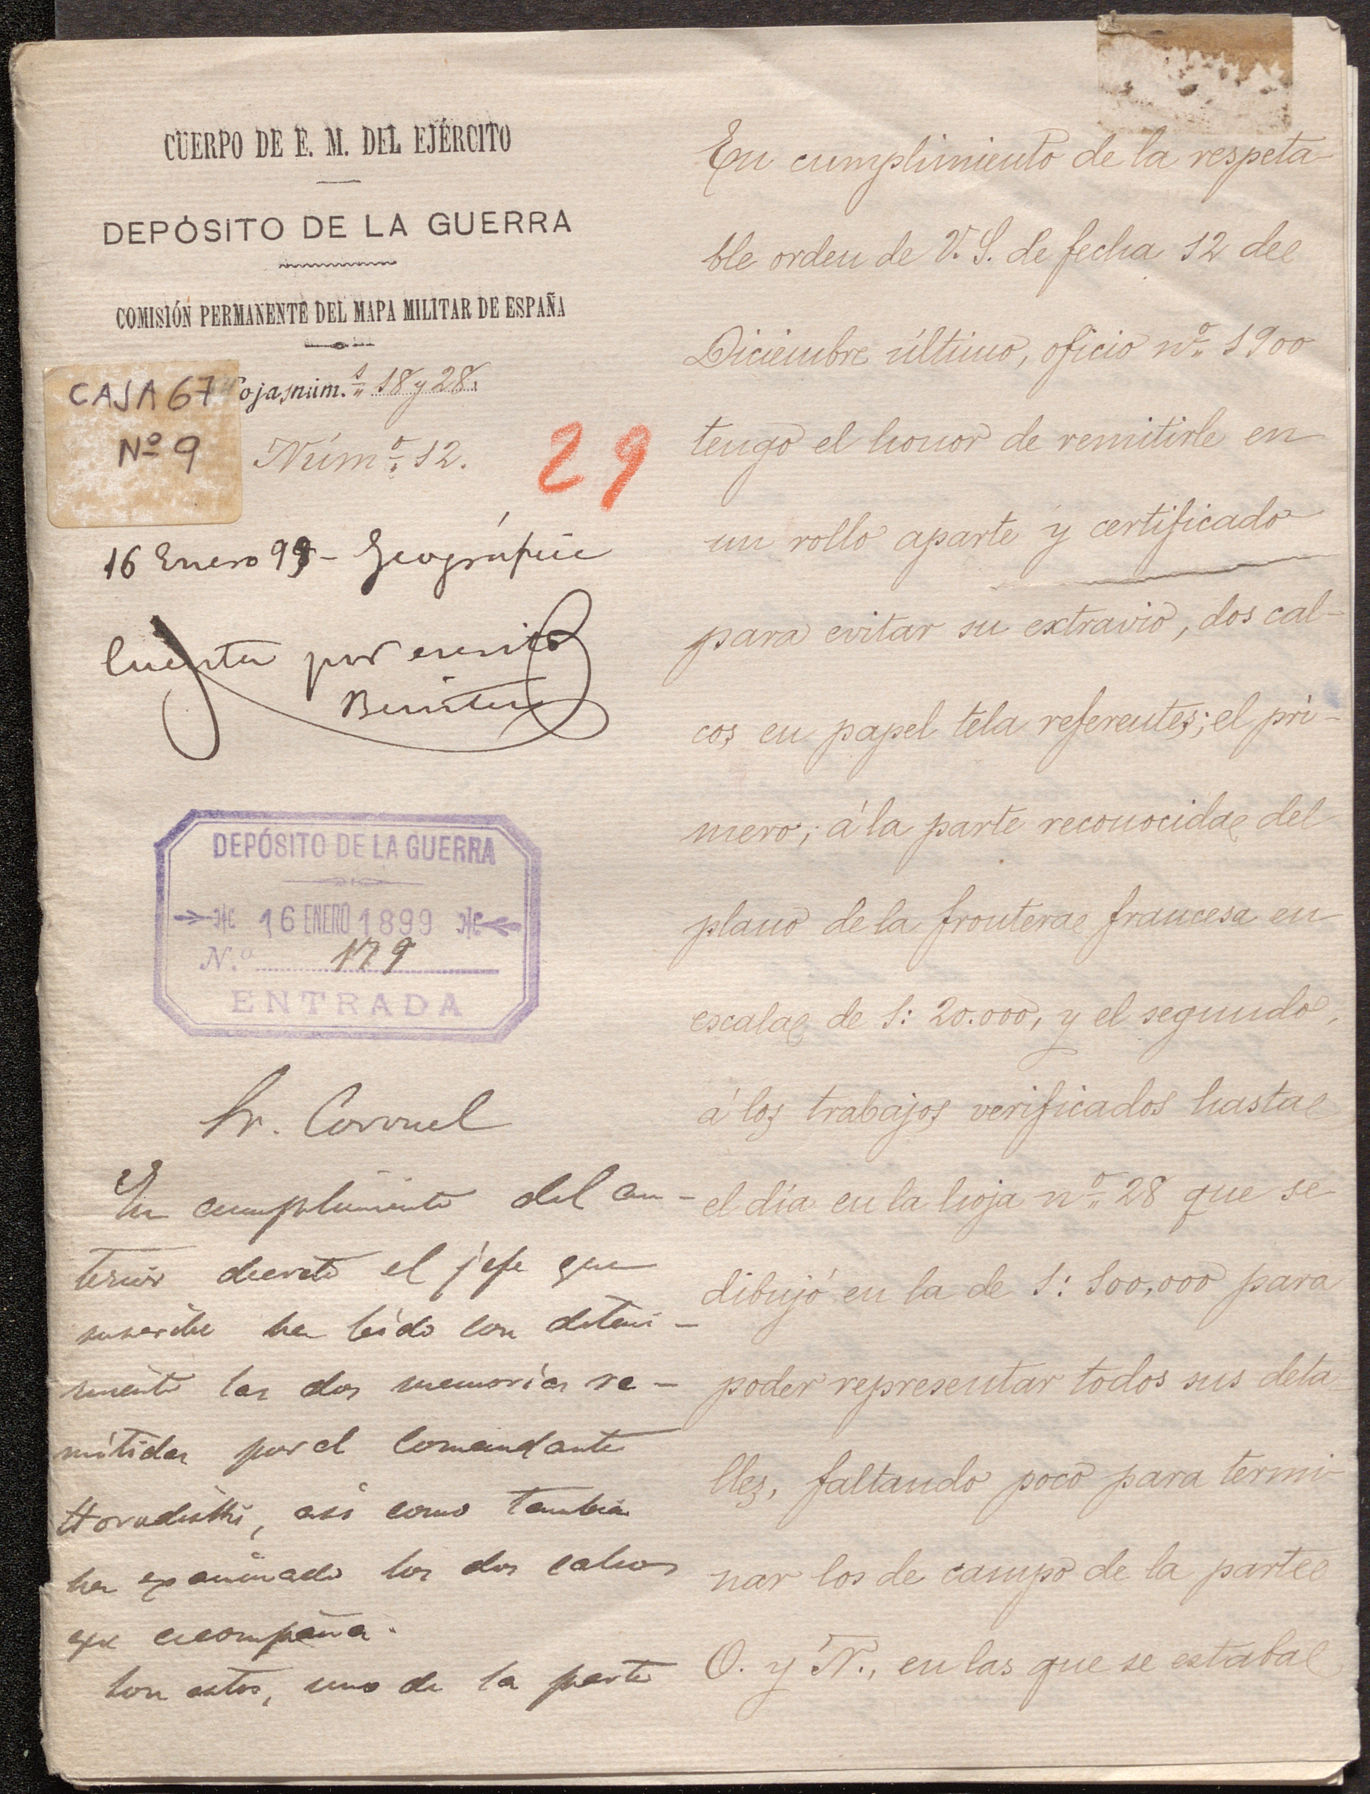 CUERPO DE E. M. DEL EJÉRCITO
DEPÓSITO DE LA GUERRA
COMISIÓN PERMANENTE DEL MAPA MILITAR DE ESPAÑA
CAJA 67
Nº 9
ojas núm.s 18 y 28.
Núm.º 12.
29
16 Enero 99 - Geográfica
Cuenta por escrito
DEPÓSITO DE LA GUERRA
16 ENERO 1899
N.º 179
ENTRADA
Sr. Coronel
En cumplimiento del an-
terior decreto el jefe que
suscribe ha leído con deteni-
miento las dos memorias re-
mitidas por el Comandante
así como tambien
ha examinado los dos calcos
que acompaña.
Son estos, uno de la parte
En cumplimiento de la respeta-
ble orden de V. S. de fecha 12 del
Diciembre último, oficio nº 1900
tengo el honor de remitirle en
un rollo aparte y certificado
para evitar su extravio, dos cal-
cos en papel tela referentes; el pri-
mero; á la parte reconocida del
plano de la frontera francesa en
escala de 1: 20.000, y el segundo,
á los trabajos verificados hasta
el día en la hoja nº 28 que se
dibujó en la de 1: 100,000 para
poder representar todos sus deta-
lles, faltando poco para termi-
nar los de campo de la parte
O. y N., en las que se estaba